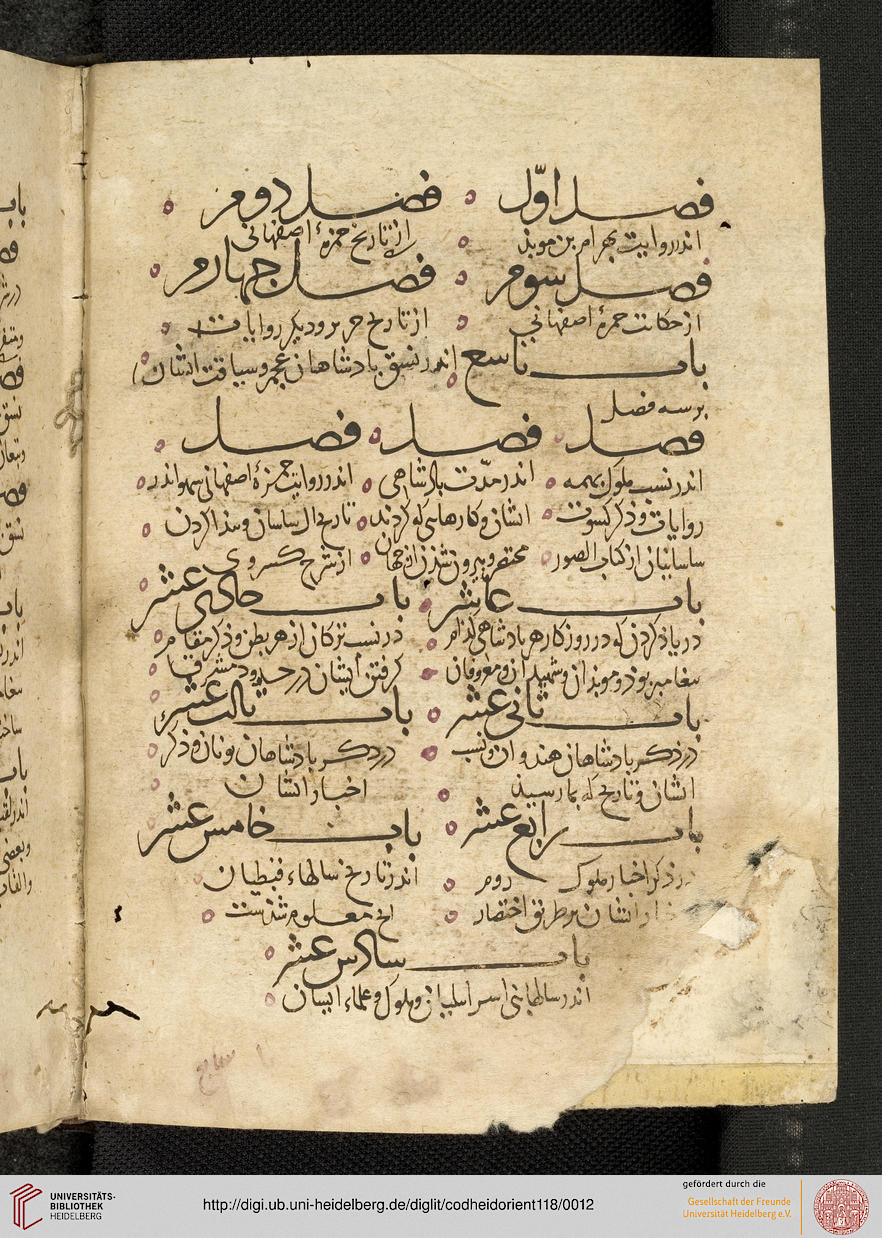 فصل اوّل فصل دوم
اندر روایت بهرام بن موبذ از تاریخ حمزهٔ اصفهانی
فصل سوم فصل چهارم
از حکایت حمزهٔ اصفهانی از تاریخ جریر و دیگر روایات
باب تاسع اندر نسق بادشاهان عجم و سیاقت ایشان
بر سه فصل
فصل فصل فصل
اندر نسب ملوک اندر مدّت بادشاهی اندر روایت حمزهٔ اصفهانی
روایات و ذکر کسوت ایشان و کارهایی که کردند تاریخ ال ساسان و بیدا کردن
ساسانیان از کتاب الصور مختصر و بیرون شذن از جهان از شرح کسروی
باب عاشر باب حادی عشر
در یاذ کردن که در روزکار هر بادشاهی کذام در نسب ترکان از هر بطن و ذکر مقام
بیغامبر بوذ و موبذان و معروفان کرفتن ایشان در حدود مشرق
باب ثانی عشر باب ثالث عشر
در ذکر بادشاهان هندوان و نسب در ذکر بادشاهان یونان و ذکر
ایشان و تاریخ که بما رسید اخبار ایشان
باب رابع عشر باب خامس عشر
در ذکر اخبار ملوک روم اندر تاریخ قبطیان
ایشان بر طریق اختصار انچ معلوم شذست
باب سادس عشر
اندر بنی اسراییل و ملوک و علماء ایشان
UNIVERSITÄTS-
BIBLIOTHEK
HEIDELBERG
http://digi.ub.uni-heidelberg.de/diglit/codheidorient118/0012
gefördert durch die
Gesellschaft der Freunde
Universität Heidelberg e.V.